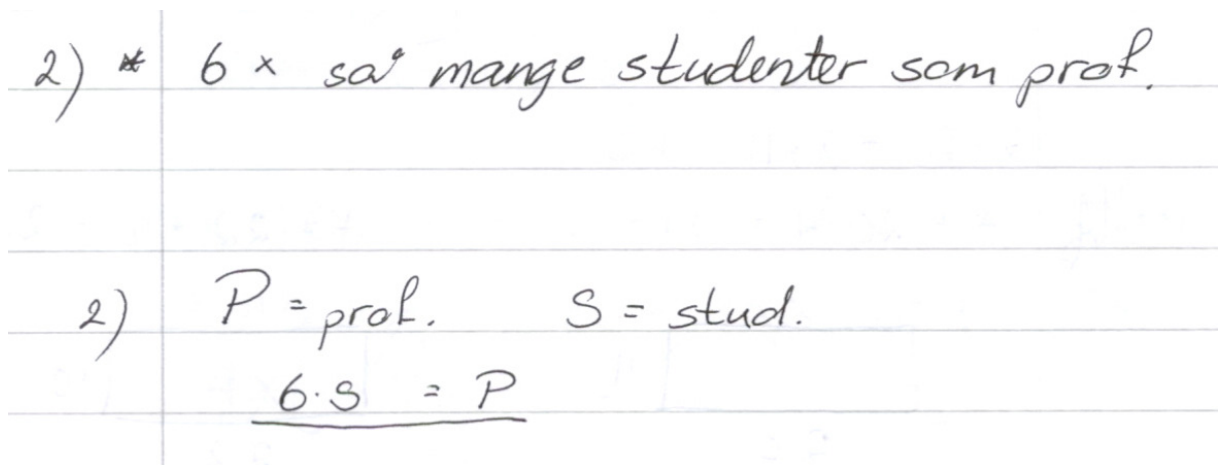 2) * 6 x så mange studenter som prof.
2) P = prof. S = stud.
6·S = P